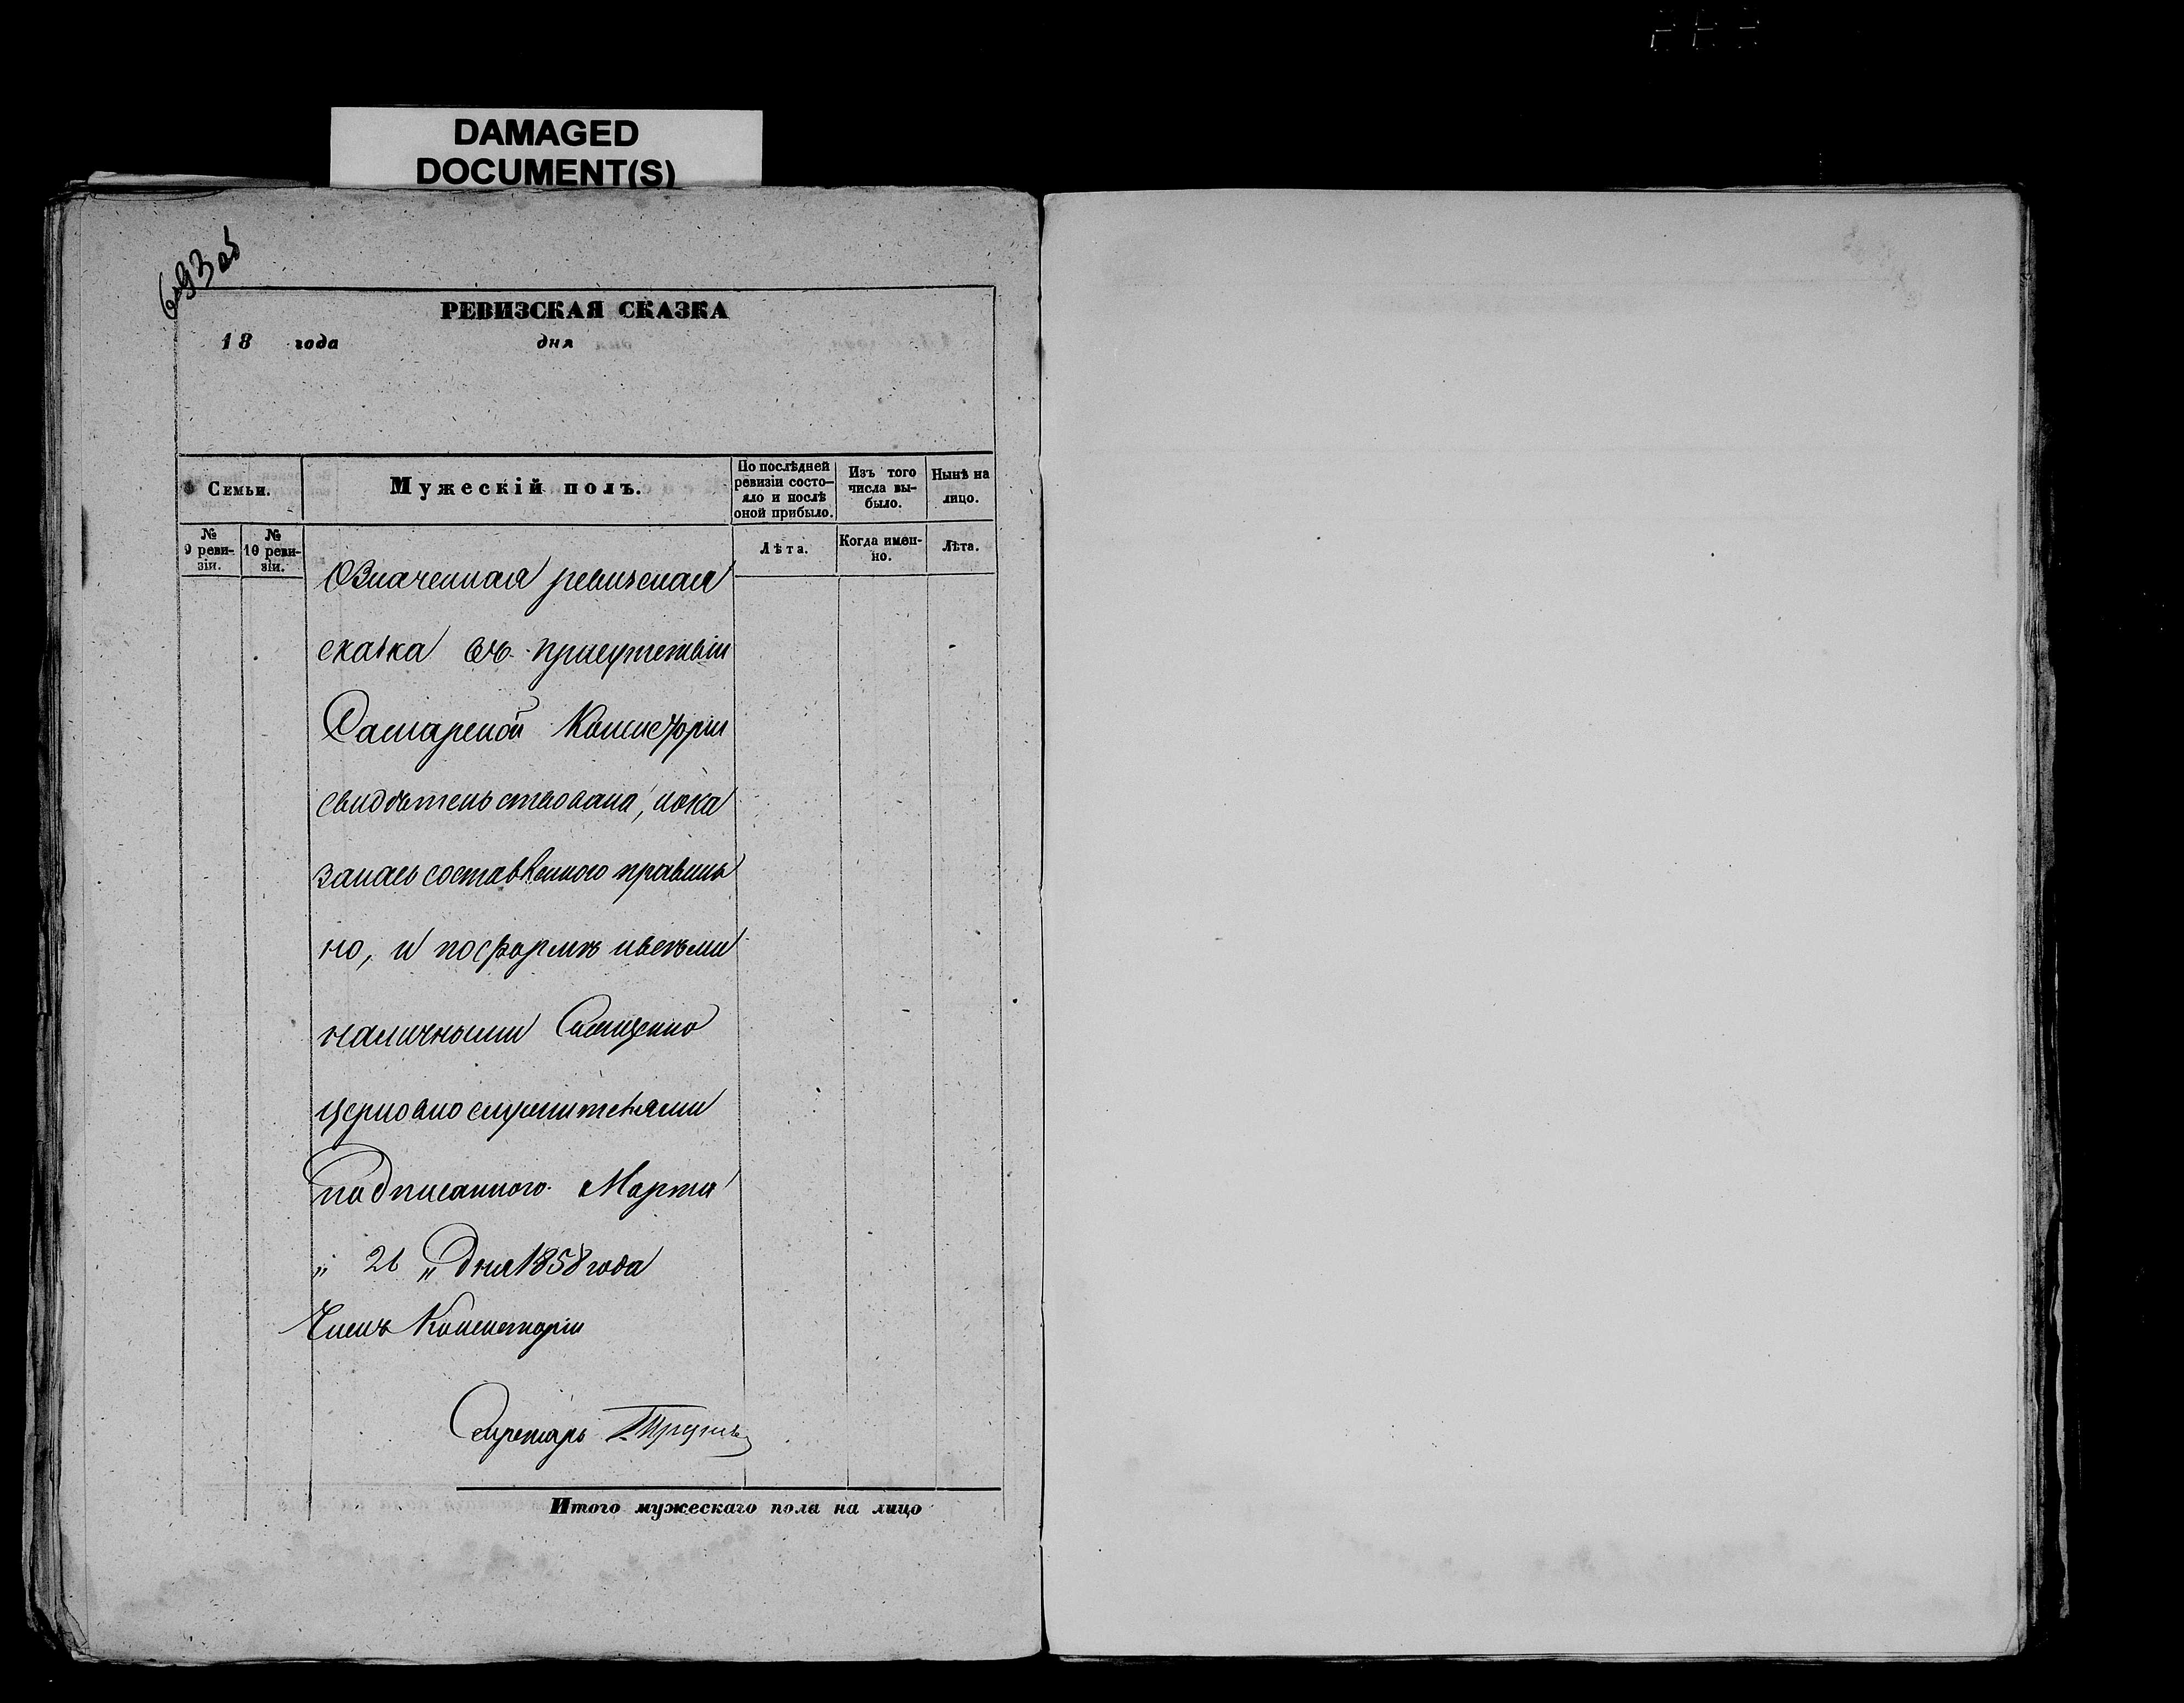 DAMAGED
DOCUMENT(S)
693 об
РЕВИЗСКАЯ СКАЗКА
18 года дня
Семьи.
Мужескій полъ.
По послѣдней ревизіи состо-яло и послѣ оной прибыло.
Изъ того числа вы-было.
Нынѣ на лицо.
№ 9 реви-зіи.
№ 10 реви-зіи.
Лѣта.
Когда имен-но.
Лѣта.
Означенная ревизская
сказка въ присутствіи
Самарской Консисторіи
свидѣтельствована, пока
залась составленною правиль
но, и по формѣ и всѣми
наличными Священно
церковнослужителями
подписанною. Марта
„ 26 „ дня 1858 года
Членъ Консисторіи
Секретарь
Итого мужескаго пола на лицо